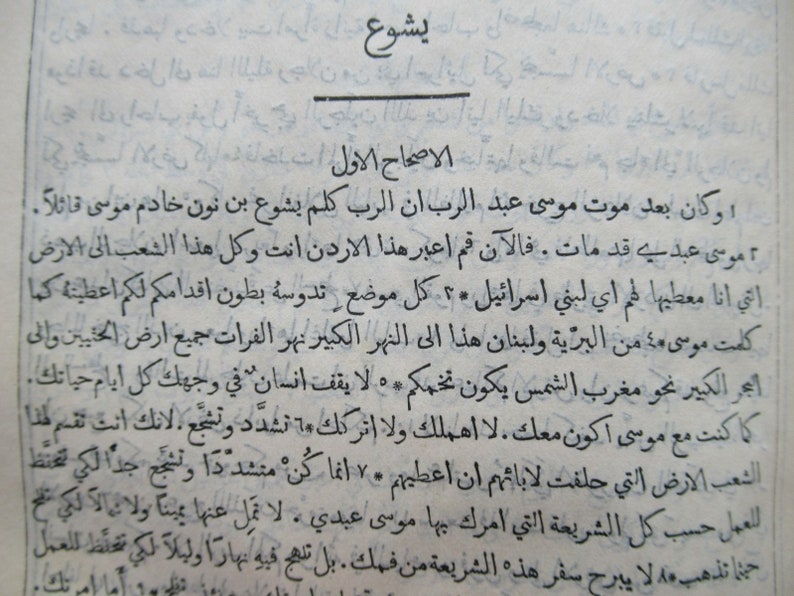 يشوع
الاصحاح الاول
١ وكان بعد موت موسى عبد الرب ان الرب كلم يشوع بن نون خادم موسى قائلاً.
٢ موسى عبدي قد مات . فالآن قم اعبر هذا الاردن انت وكل هذا الشعب الى الارض
التي انا معطيها لهم اي لبني اسرائيل * ٣ كل موضع تدوسهُ بطون اقدامكم لكم اعطيتهُ كما
كلمت موسى * ٤ من البرّية ولبنان هذا الى النهر الكبير نهر الفرات جميع ارض الحثيين والى
البحر الكبير نحو مغرب الشمس يكون تخمكم * ٥ لا يقف انسان في وجهك كل ايام حياتك .
كما كنت مع موسى اكون معك . لا اهملك ولا اتركك * ٦ تشدَّد وتشجَّع . لانك انت تقسم لهذا
الشعب الارض التي حلفت لابائهم ان اعطيهم * ٧ انما كُنْ متشدّدًا وتشجَّع جدًّا لكي تتحفَّظ
للعمل حسب كل الشريعة التي امرك بها موسى عبدي . لا تَمِل عنها يمينًا ولا شمالاً لكي تفلح
حيثما تذهب * ٨ لا يبرح سفر هذه الشريعة من فمك . بل تلهج فيهِ نهارًا وليلاً لكي تتحفَّظ للعمل
أما امرتك .